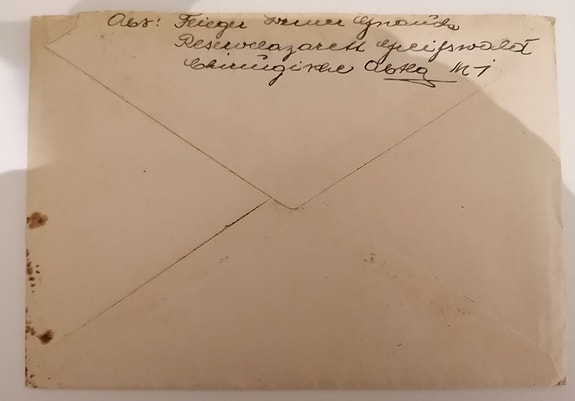 Abs: Flieger Werner
Reservelazarett Greifswald
Chirurgische Abtlg M 1